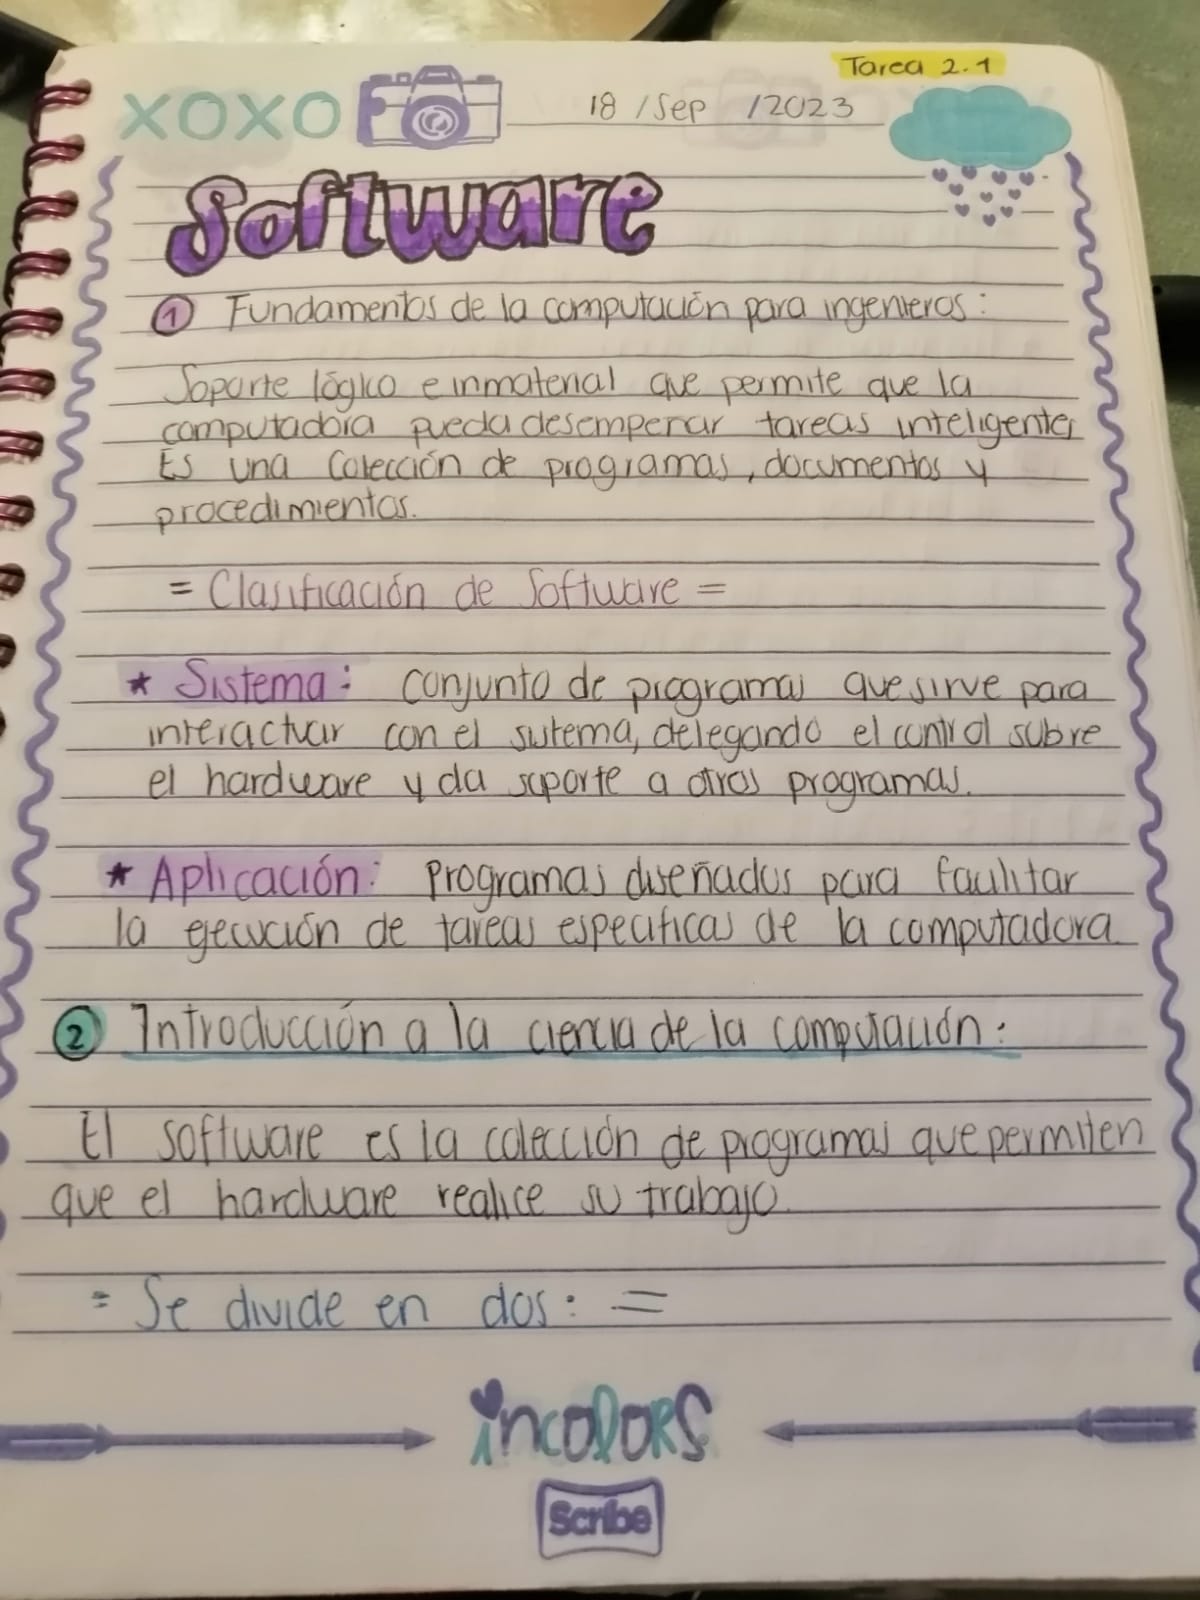 Tarea 2.1
XOXO
18 / Sep / 2023
Software
1 Fundamentos de la computación para ingenieros:
Soporte lógico e inmaterial que permite que la
computadora pueda desempeñar tareas inteligentes
Es una Colección de programas, documentos y
procedimientos.
= Clasificación de Software =
* Sistema: conjunto de programas que sirve para
interactuar con el sistema, delegando el control sobre
el hardware y da soporte a otros programas.
* Aplicación: Programas diseñados para facilitar
la ejecución de tareas especificas de la computadora
2 Introducción a la ciencia de la computación:
El software es la colección de programas que permiten
que el hardware realice su trabajo.
= Se divide en dos: =
incolors
Scribe